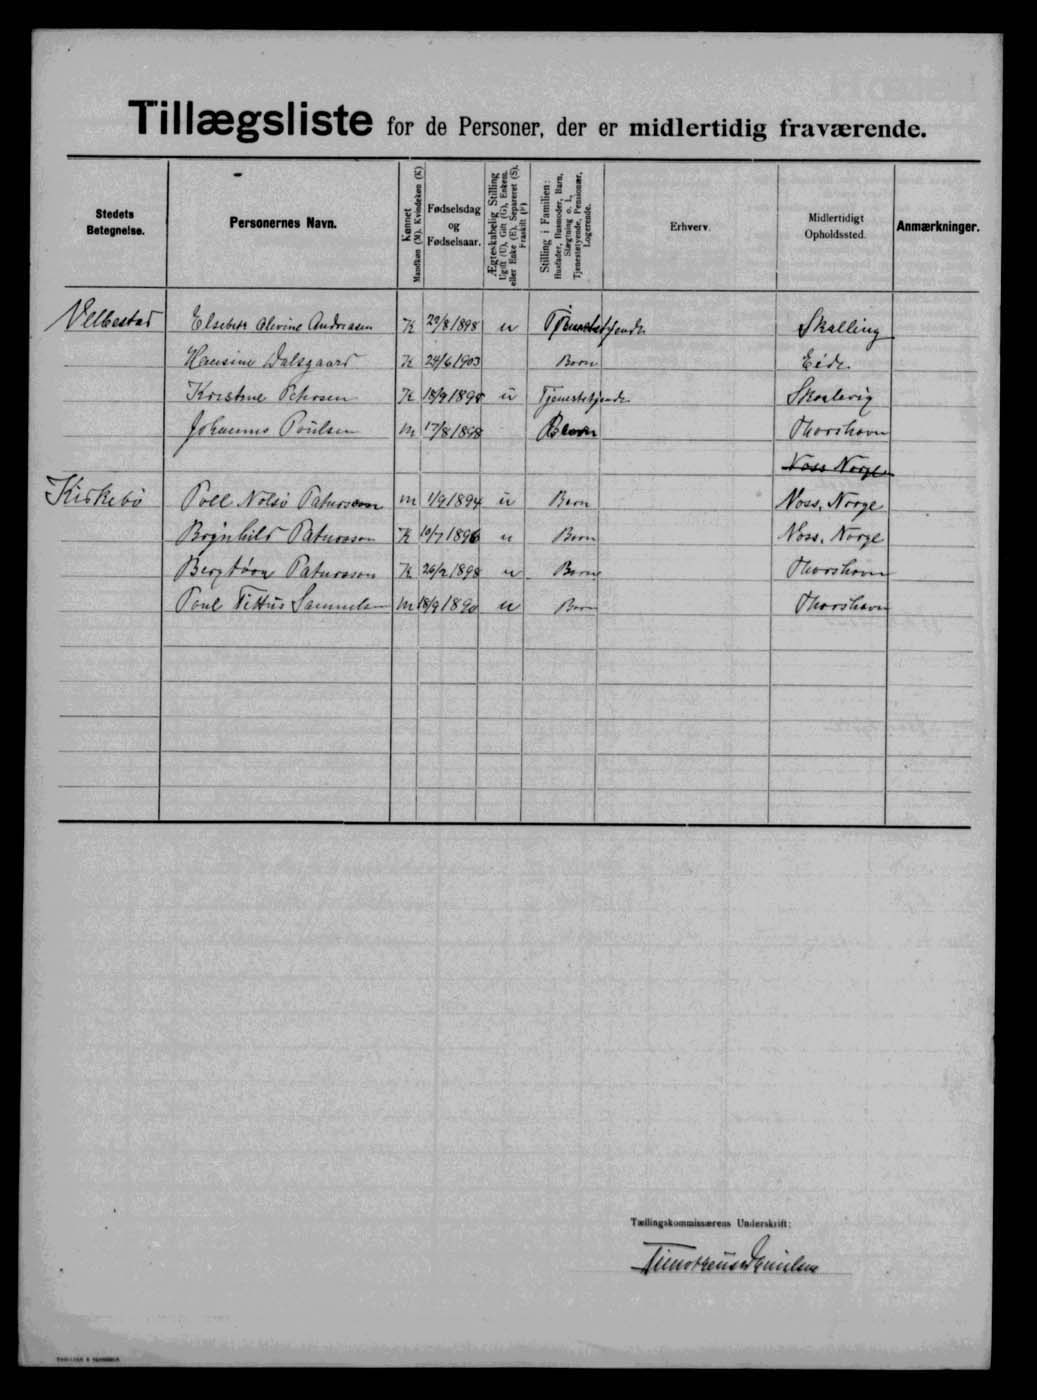 Tillægsliste for de Personer, der er midlertidig fraværende.
Stedets Betegnelse.
Personernes Navn.
Kønnet Mandkøn (M). Kvindekøn (K)
Fødselsdag og Fødselsaar.
Ægteskabelig Stilling Ugift (U), Gift (G), Enkem. eller Enke (E), Separeret (S), Fraskilt (F)
Stilling i Familien: Husfader, Husmoder, Barn, Slægtning o. l., Tjenestetyende, Pensionær, Logerende.
Erhverv.
Midlertidigt Opholdssted.
Anmærkninger.
Velbestad Elsebeth Olevine Andreasen K 29/8 1898 u Tjenestetyende Skælling
Hansine Dalsgaard K 24/6 1903 Barn Eide
Kristine Petersen K 18/9 1895 u Tjenestetyende Skaalevig
Johannes Poulsen M 17/8 1898 Barn Thorshavn
Voss Norge
Kirkebø Poll Nolsø Patursson M 1/9 1894 u Barn Voss, Norge
Brynhild Patursson K 10/7 1896 u Barn Voss, Norge
Bergtora Patursson K 26/2 1898 u Barn Thorshavn
Poul Tittus Samuelsen M 18/9 1890 u Barn Thorshavn
Tællingskommissærens Underskrift: